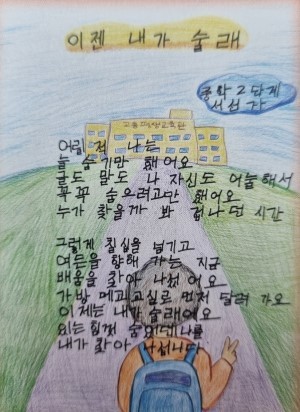 이젠 내가 술래
중학 2단계
어릴 적 나는
늘 숨기만 했어요
글도 말도 나 자신도 어눌해서
꼭꼭 숨으려고만 했어요
누가 찾을까 봐 겁나던 시간
그렇게 칠십을 넘기고
여든을 향해 가는 지금
배움을 찾아 나섰어요
가방 메고 교실로 먼저 달려 가요
이제는 내가 술래에요
있는 힘껏 숨어있는 나를
내가 찾아 나섭니다